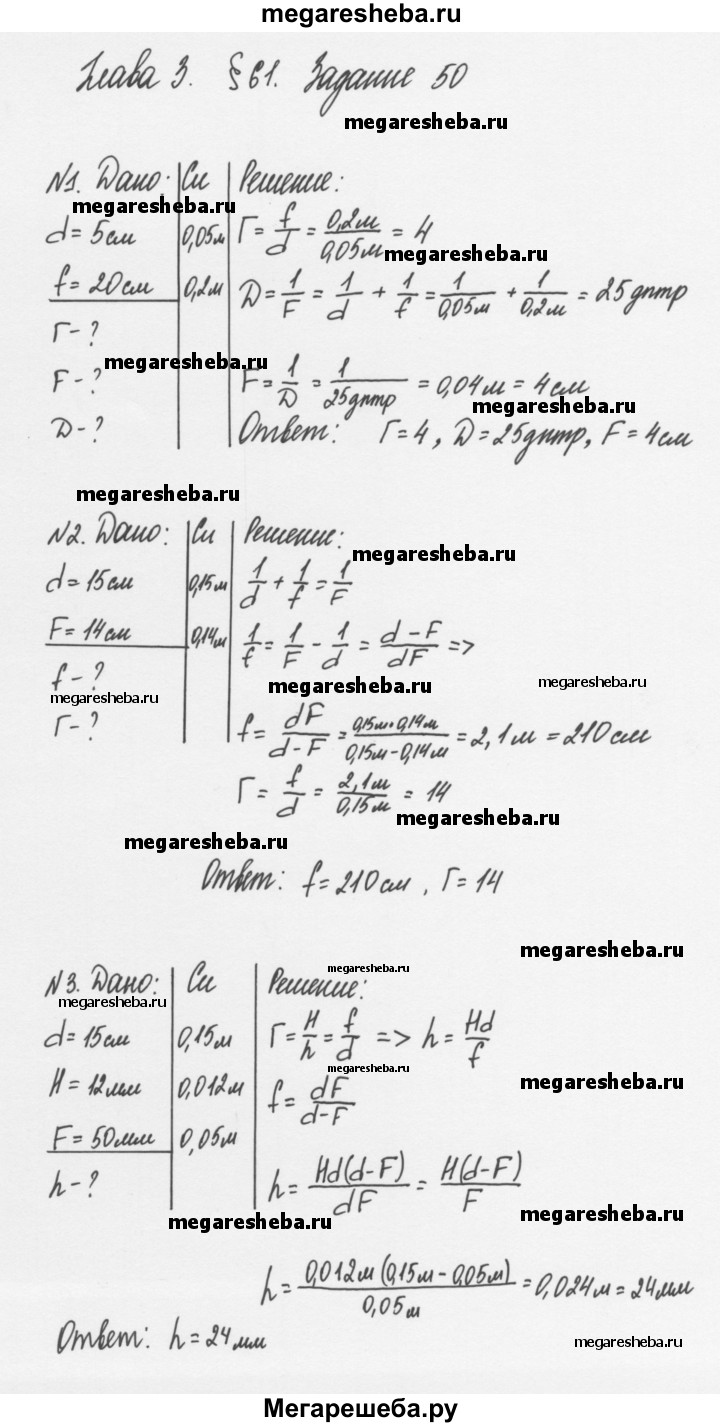 megaresheba.ru
Глава 3. § 61. Задание 50
megaresheba.ru
№1. Дано: Си Решение:
megaresheba.ru
d = 5см 0,05м Г = f/d = 0,2м/0,05м = 4
megaresheba.ru
f = 20см 0,2м D = 1/F = 1/d + 1/f = 1/0,05м + 1/0,2м = 25дптр
Г - ?
megaresheba.ru
F - ? F = 1/D = 1/25дптр = 0,04м = 4см
megaresheba.ru
D - ? Ответ: Г = 4, D = 25дптр, F = 4см
megaresheba.ru
№2. Дано: Си Решение:
megaresheba.ru
d = 15см 0,15м 1/d + 1/f = 1/F
F = 14см 0,14м 1/f = 1/F - 1/d = d - F/dF =>
f - ?
megaresheba.ru megaresheba.ru megaresheba.ru
Г - ? f = dF/d - F = 0,15м • 0,14м/0,15м - 0,14м = 2,1м = 210см
Г = f/d = 2,1м/0,15м = 14
megaresheba.ru
megaresheba.ru
Ответ: f = 210см, Г = 14
megaresheba.ru
megaresheba.ru
№3. Дано: Си Решение:
megaresheba.ru megaresheba.ru
d = 15см 0,15м Г = H/h = f/d => h = Hd/f
megaresheba.ru
megaresheba.ru
H = 12мм 0,012м f = dF/d - F
F = 50мм 0,05м
megaresheba.ru
h - ? h = Hd(d - F)/dF = H(d - F)/F
megaresheba.ru megaresheba.ru
h = 0,012м(0,15м - 0,05м)/0,05м = 0,024м = 24мм
Ответ: h = 24мм
megaresheba.ru
Мегарешеба.ру